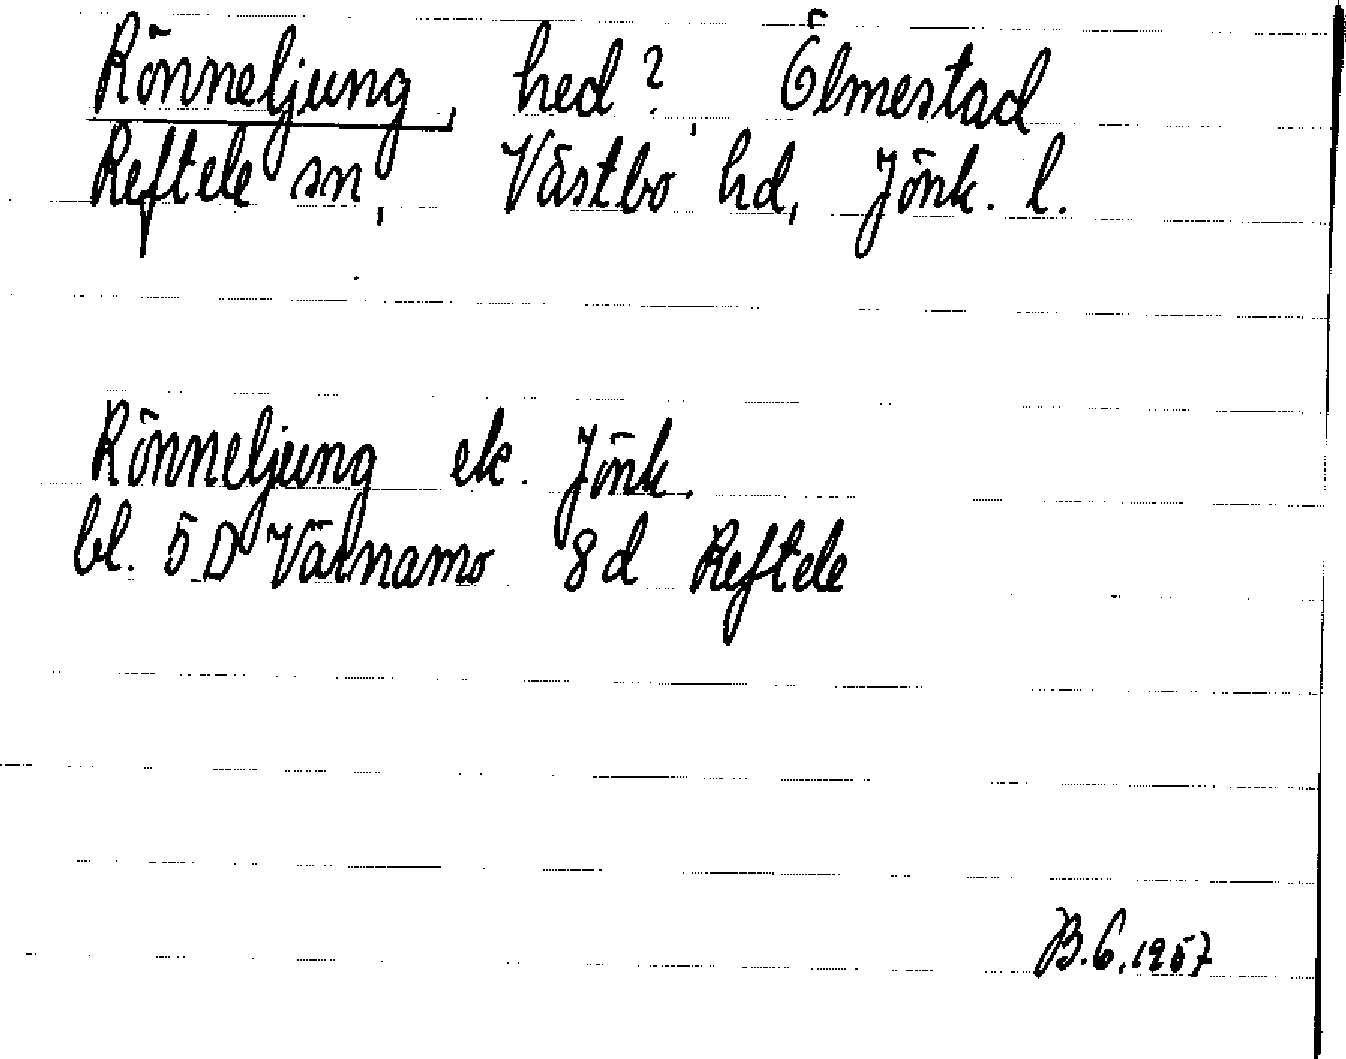 Rönneljung, hed?, Ölmestad
Reftele sn, Västbo hd, Jönk. l.
Rönneljung ek. Jönk.
bl. 5 D Värnamo 8d Reftele
B.G. 1957